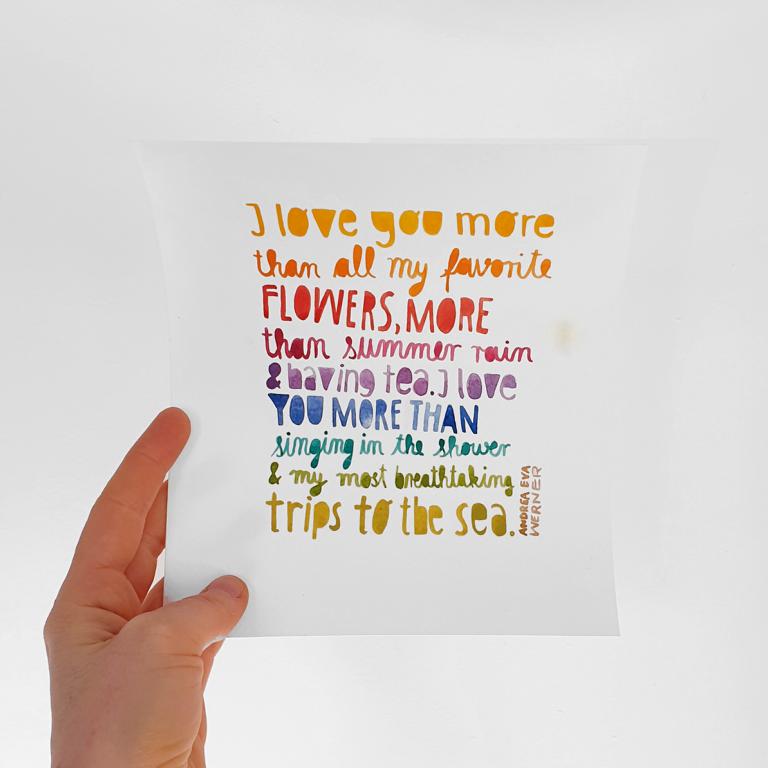 I love you more
than all my favorite
FLOWERS, MORE
than summer rain
& having tea. I love
YOU MORE THAN
singing in the shower
& my most breathtaking
trips to the sea.
ANDREA EVA
WERNER